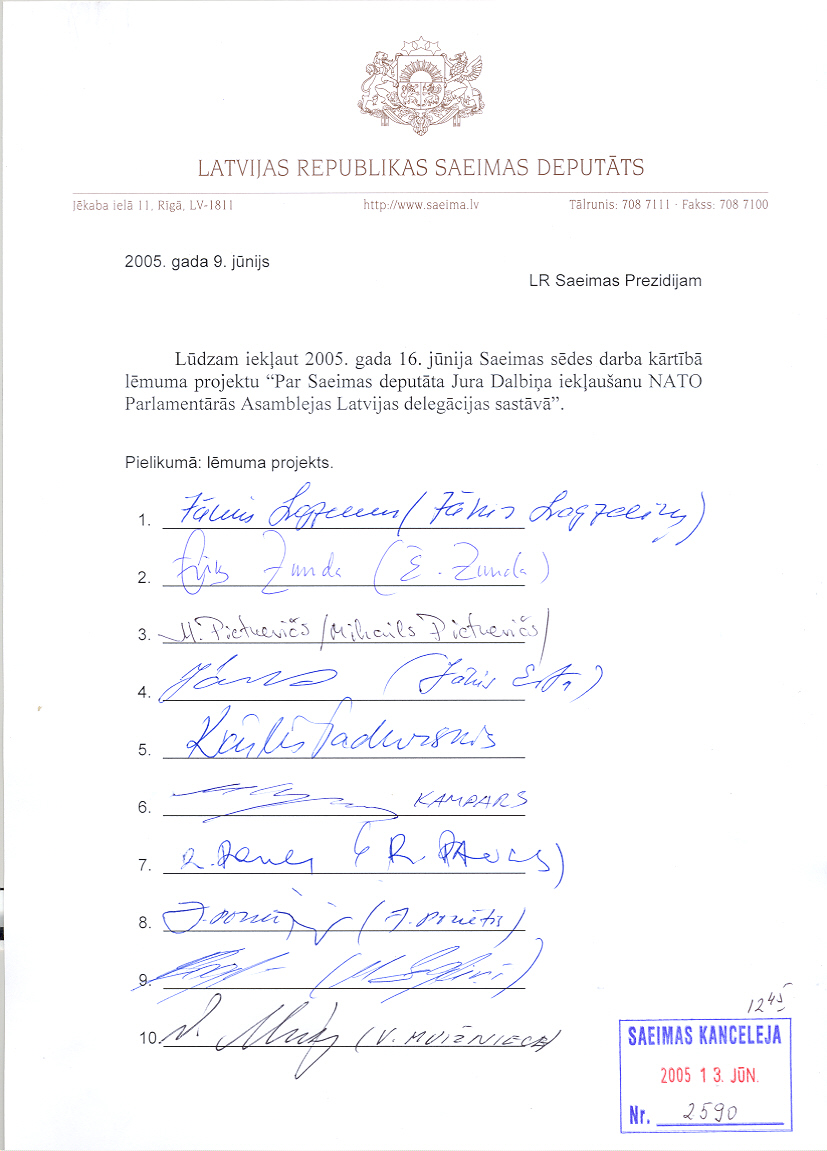 LATVIJAS REPUBLIKAS SAEIMAS DEPUTĀTS
Jēkaba ielā 11, Rīgā, LV-1811 http://www.saeima.lv Tālrunis: 708 7111 - Fakss: 708 7100
2005. gada 9. jūnijs
LR Saeimas Prezidijam
Lūdzam iekļaut 2005. gada 16. jūnija Saeimas sēdes darba kārtībā
lēmuma projektu “Par Saeimas deputāta Jura Dalbiņa iekļaušanu NATO
Parlamentārās Asamblejas Latvijas delegācijas sastāvā”.
Pielikumā: lēmuma projekts.
1. Jānis (Jānis Lagzdiņš)
2. Zunda (E. Zunda)
3. M. Pietkevičs /Mihails Pietkevičs/
4. (Jānis
5. Kārlis
6. KAMPARS
7. R. (R.
8. (J.
9. (
10. V. (V. MUIŽNIECE)
12 45
SAEIMAS KANCELEJA
2005 13. JŪN.
Nr. 2590